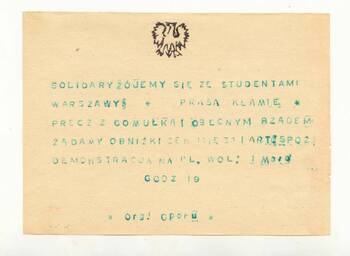 SOLIDARYZÓJEMY SIĘ ZE STUDENTAMI
WARSZAWYŚ + PRASA KŁAMIE *
PRECZ Z GOMUŁKĄ I OBECNYM RZĄDEM
ŻĄDAMY OBNIŻKI CEN MIĘSA I ART. SPOŻ.
DEMONSTRACJA NA PL. WOL.
GODZ 19
* Org. Oporu *